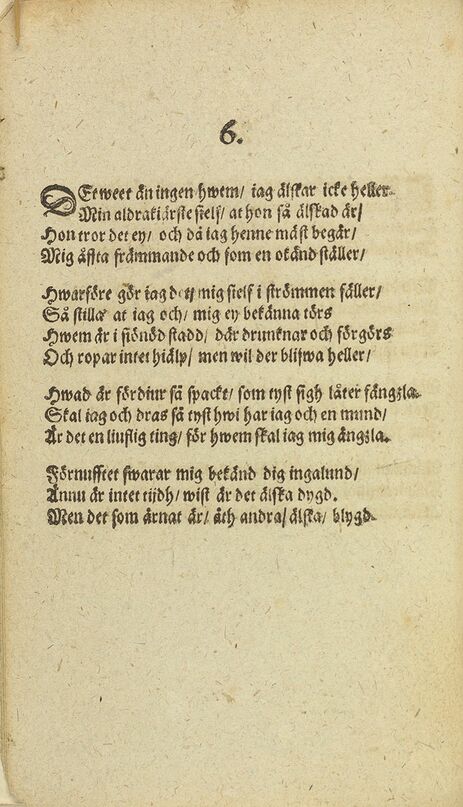 6.
DEt weet än ingen hwem/ iag älskar icke heller
Min aldrakiärste sielf/ at hon så älskad är/
Hon tror det ey/ och då iag henne mäst begär/
Mig åffta främmande och som en okänd ställer/
Hwarföre gör iag det/ mig sielf i strömmen fäller/
Så stilla at iag och/ mig ey bekänna törs
Hwem är i siönöd stadd/ där drunknar och förgörs
Och ropar intet hiälp/ men wil der bliswa heller/
Hwad är fördiur så spackt/ som tyst sigh låter fängzla.
Skal iag och dras så tyst hwi har iag och en mund/
Är det en liuflig ting/ för hwem skal iag mig ängzla.
Förnufftet swarar mig bekänd dig ingalund/
Ännu är intet tijdh/ wist är det älska dygd.
Men det som ärnat är/ äth andra/ älska/ blygd.